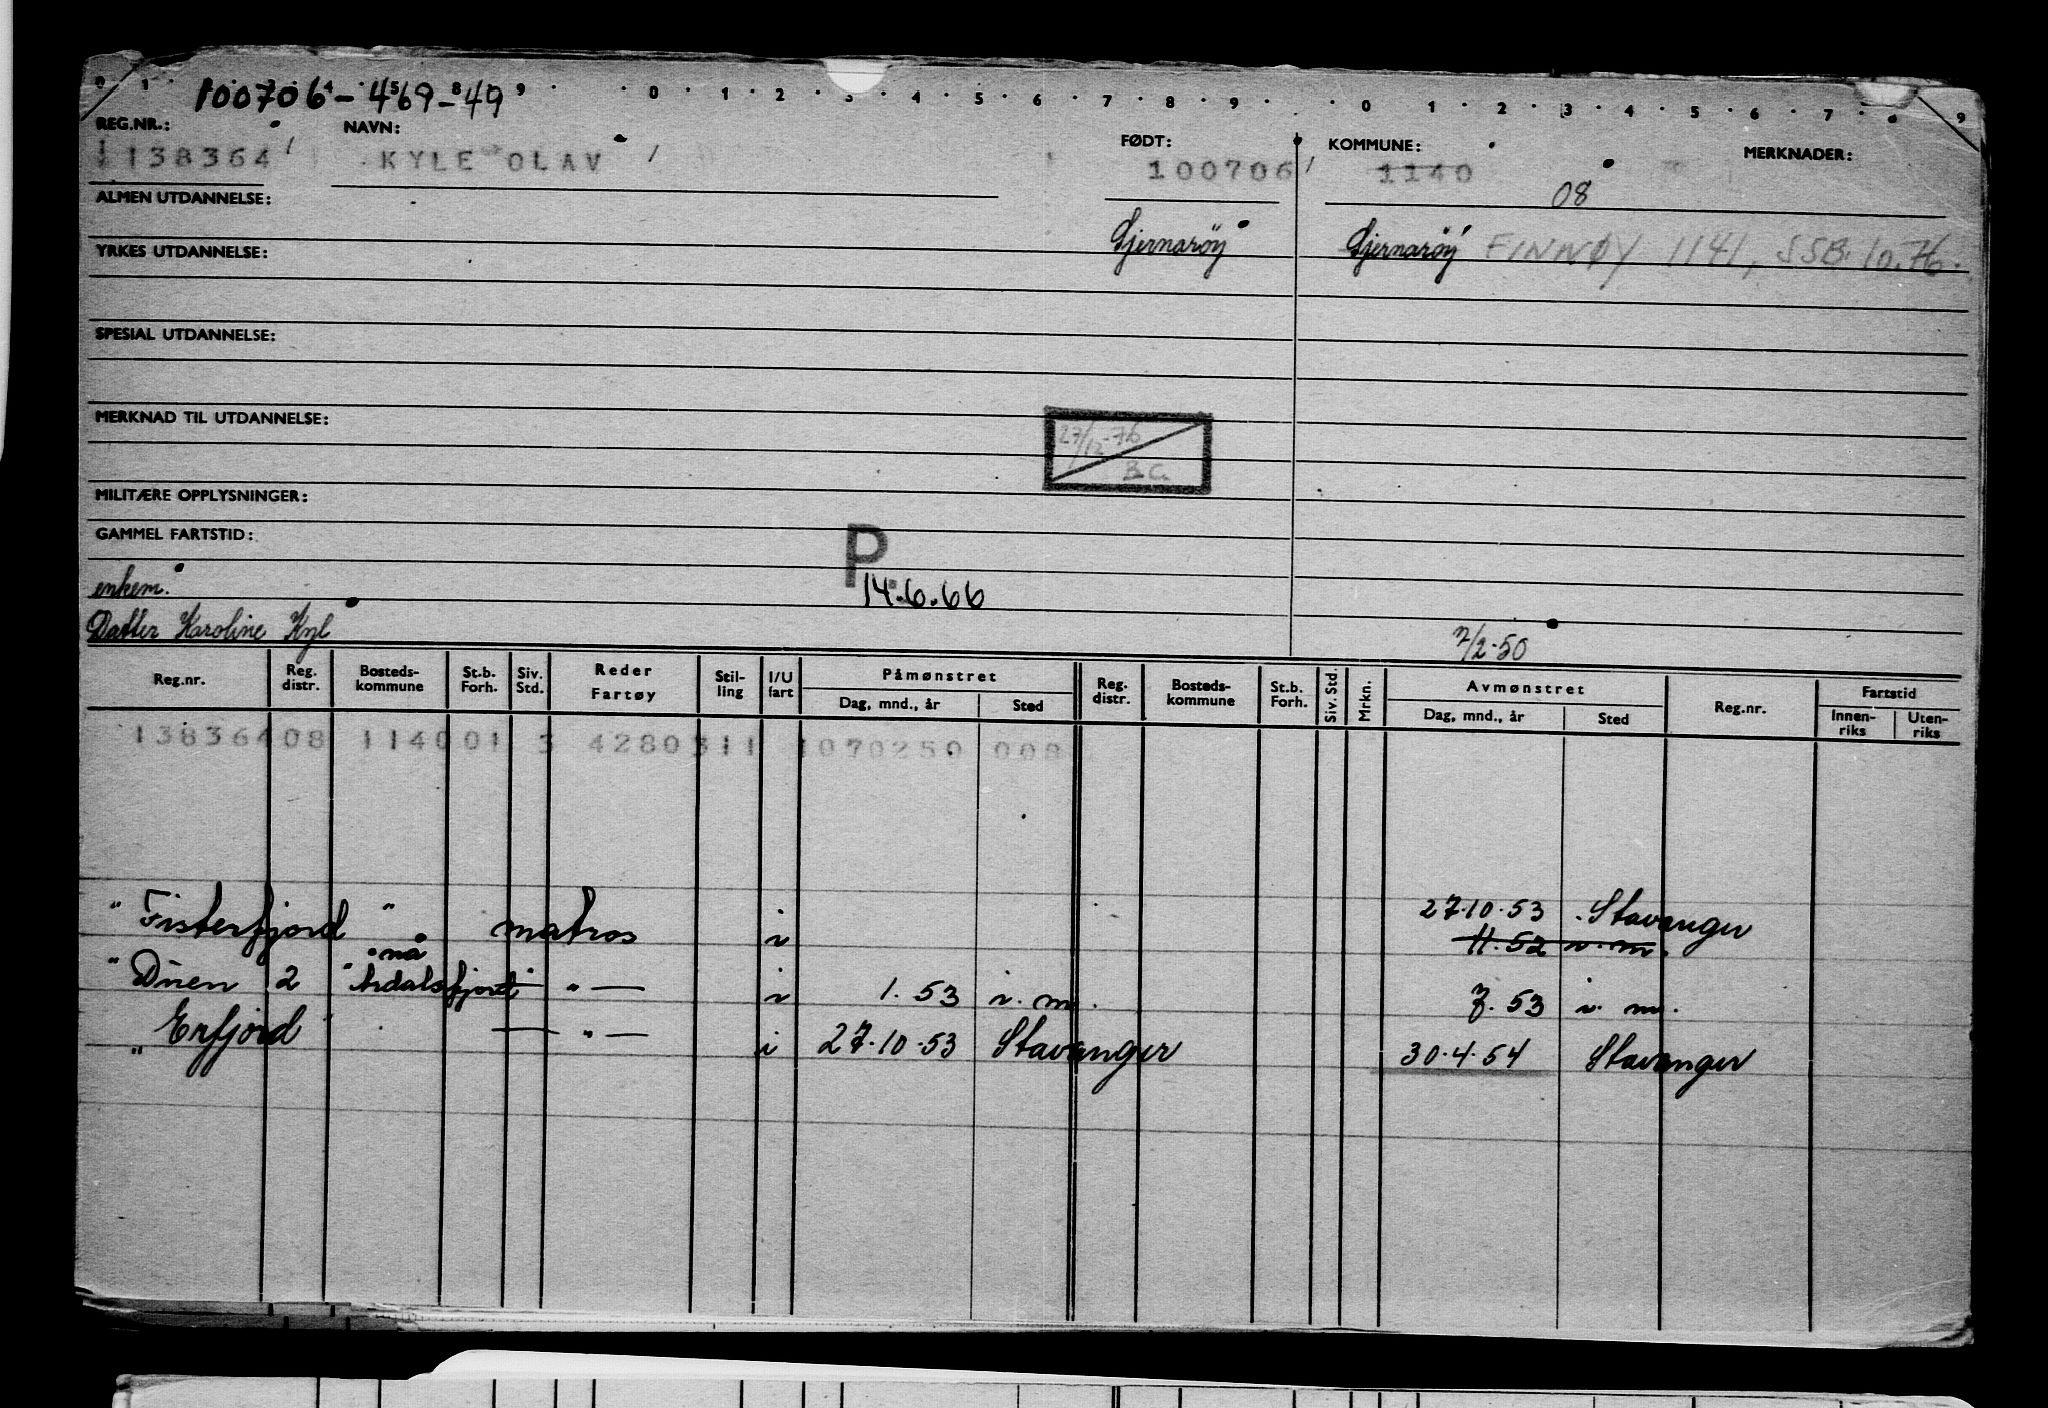 0 1 100706-4569-849 0 1 2 3 4 5 6 7 8 9 0 1 2 3 4 5 6 7 8 9
REG.NR.: NAVN: FØDT: KOMMUNE: MERKNADER:
138364 KYLE OLAV 100706 1140
ALMEN UTDANNELSE: 08
Sjernarøy Sjernarøy FINNØY 1141, SSB. 10.76.
YRKES UTDANNELSE:
SPESIAL UTDANNELSE:
MERKNAD TIL UTDANNELSE:
27/12-76
B.C.
MILITÆRE OPPLYSNINGER:
GAMMEL FARTSTID:
P
enkem. 14.6.66
Datter Karoline Kyl 7/2-50
Reg.nr. Reg. distr. Bosteds-kommune St.b. Forh. Siv. Std. Reder Fartøy Stil-ling I/U fart Påmønstret Dag, mnd., år Sted Reg. distr. Bosteds-kommune St.b. Forh. Siv. Std. Mrkn. Avmønstret Dag, mnd., år Sted Reg.nr. Fartstid Innen-riks Uten-riks
138364 08 1140 01 3 4280311 1070250 008
" Fisterfjord " matros i 27.10.53 Stavanger
11.52 i. m.
nå
" Duen 2 " Årdalsfjord " — " — i 1.53 i. m. 7.53 i. m.
" Erfjord " — " — i 27.10.53 Stavanger 30.4.54 Stavanger